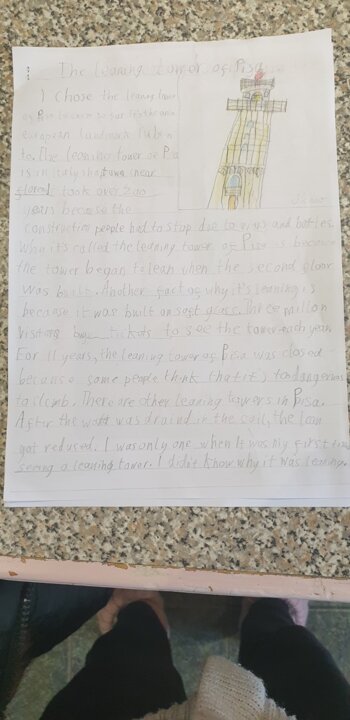 The leaning tower of Pisa
I chose the leaning tower
of Pisa because so far it's the only
european landmark I've been
to. The leaning tower of Pisa
is in Italy
took over 200
years because the
construction people had to stop due to wars and battles.
Why it's called the leaning tower of Pisa is because
the tower began to lean when the second floor
was built. Another fact of why it's leaning is
because it was built on soft Three million
visitors buy tickets to see the tower each year.
For 11 years, the leaning tower of Pisa was closed
because some people think that it's to dangerous
to climb. There are other leaning towers in Pisa.
After the was in the soil, the lean
got reduced. I was only one when it was my first time
seeing a leaning tower. I didn't know why it was leaning.